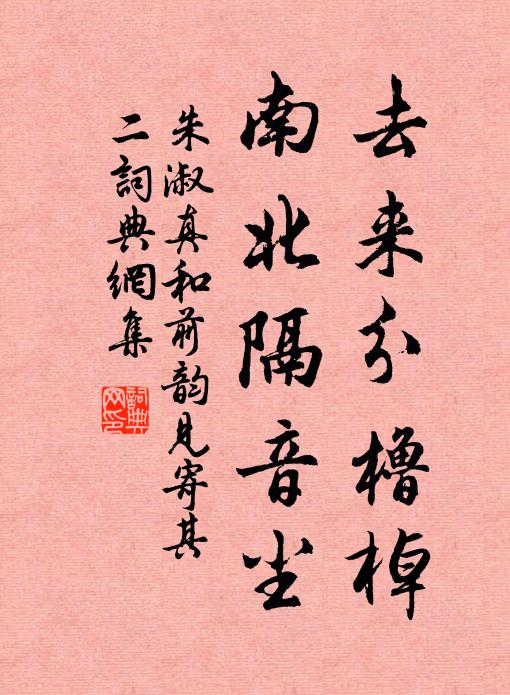 去来分櫓棹
南北隔音尘
朱淑真和前韵见寄其
二詞典網集
詞典
网印